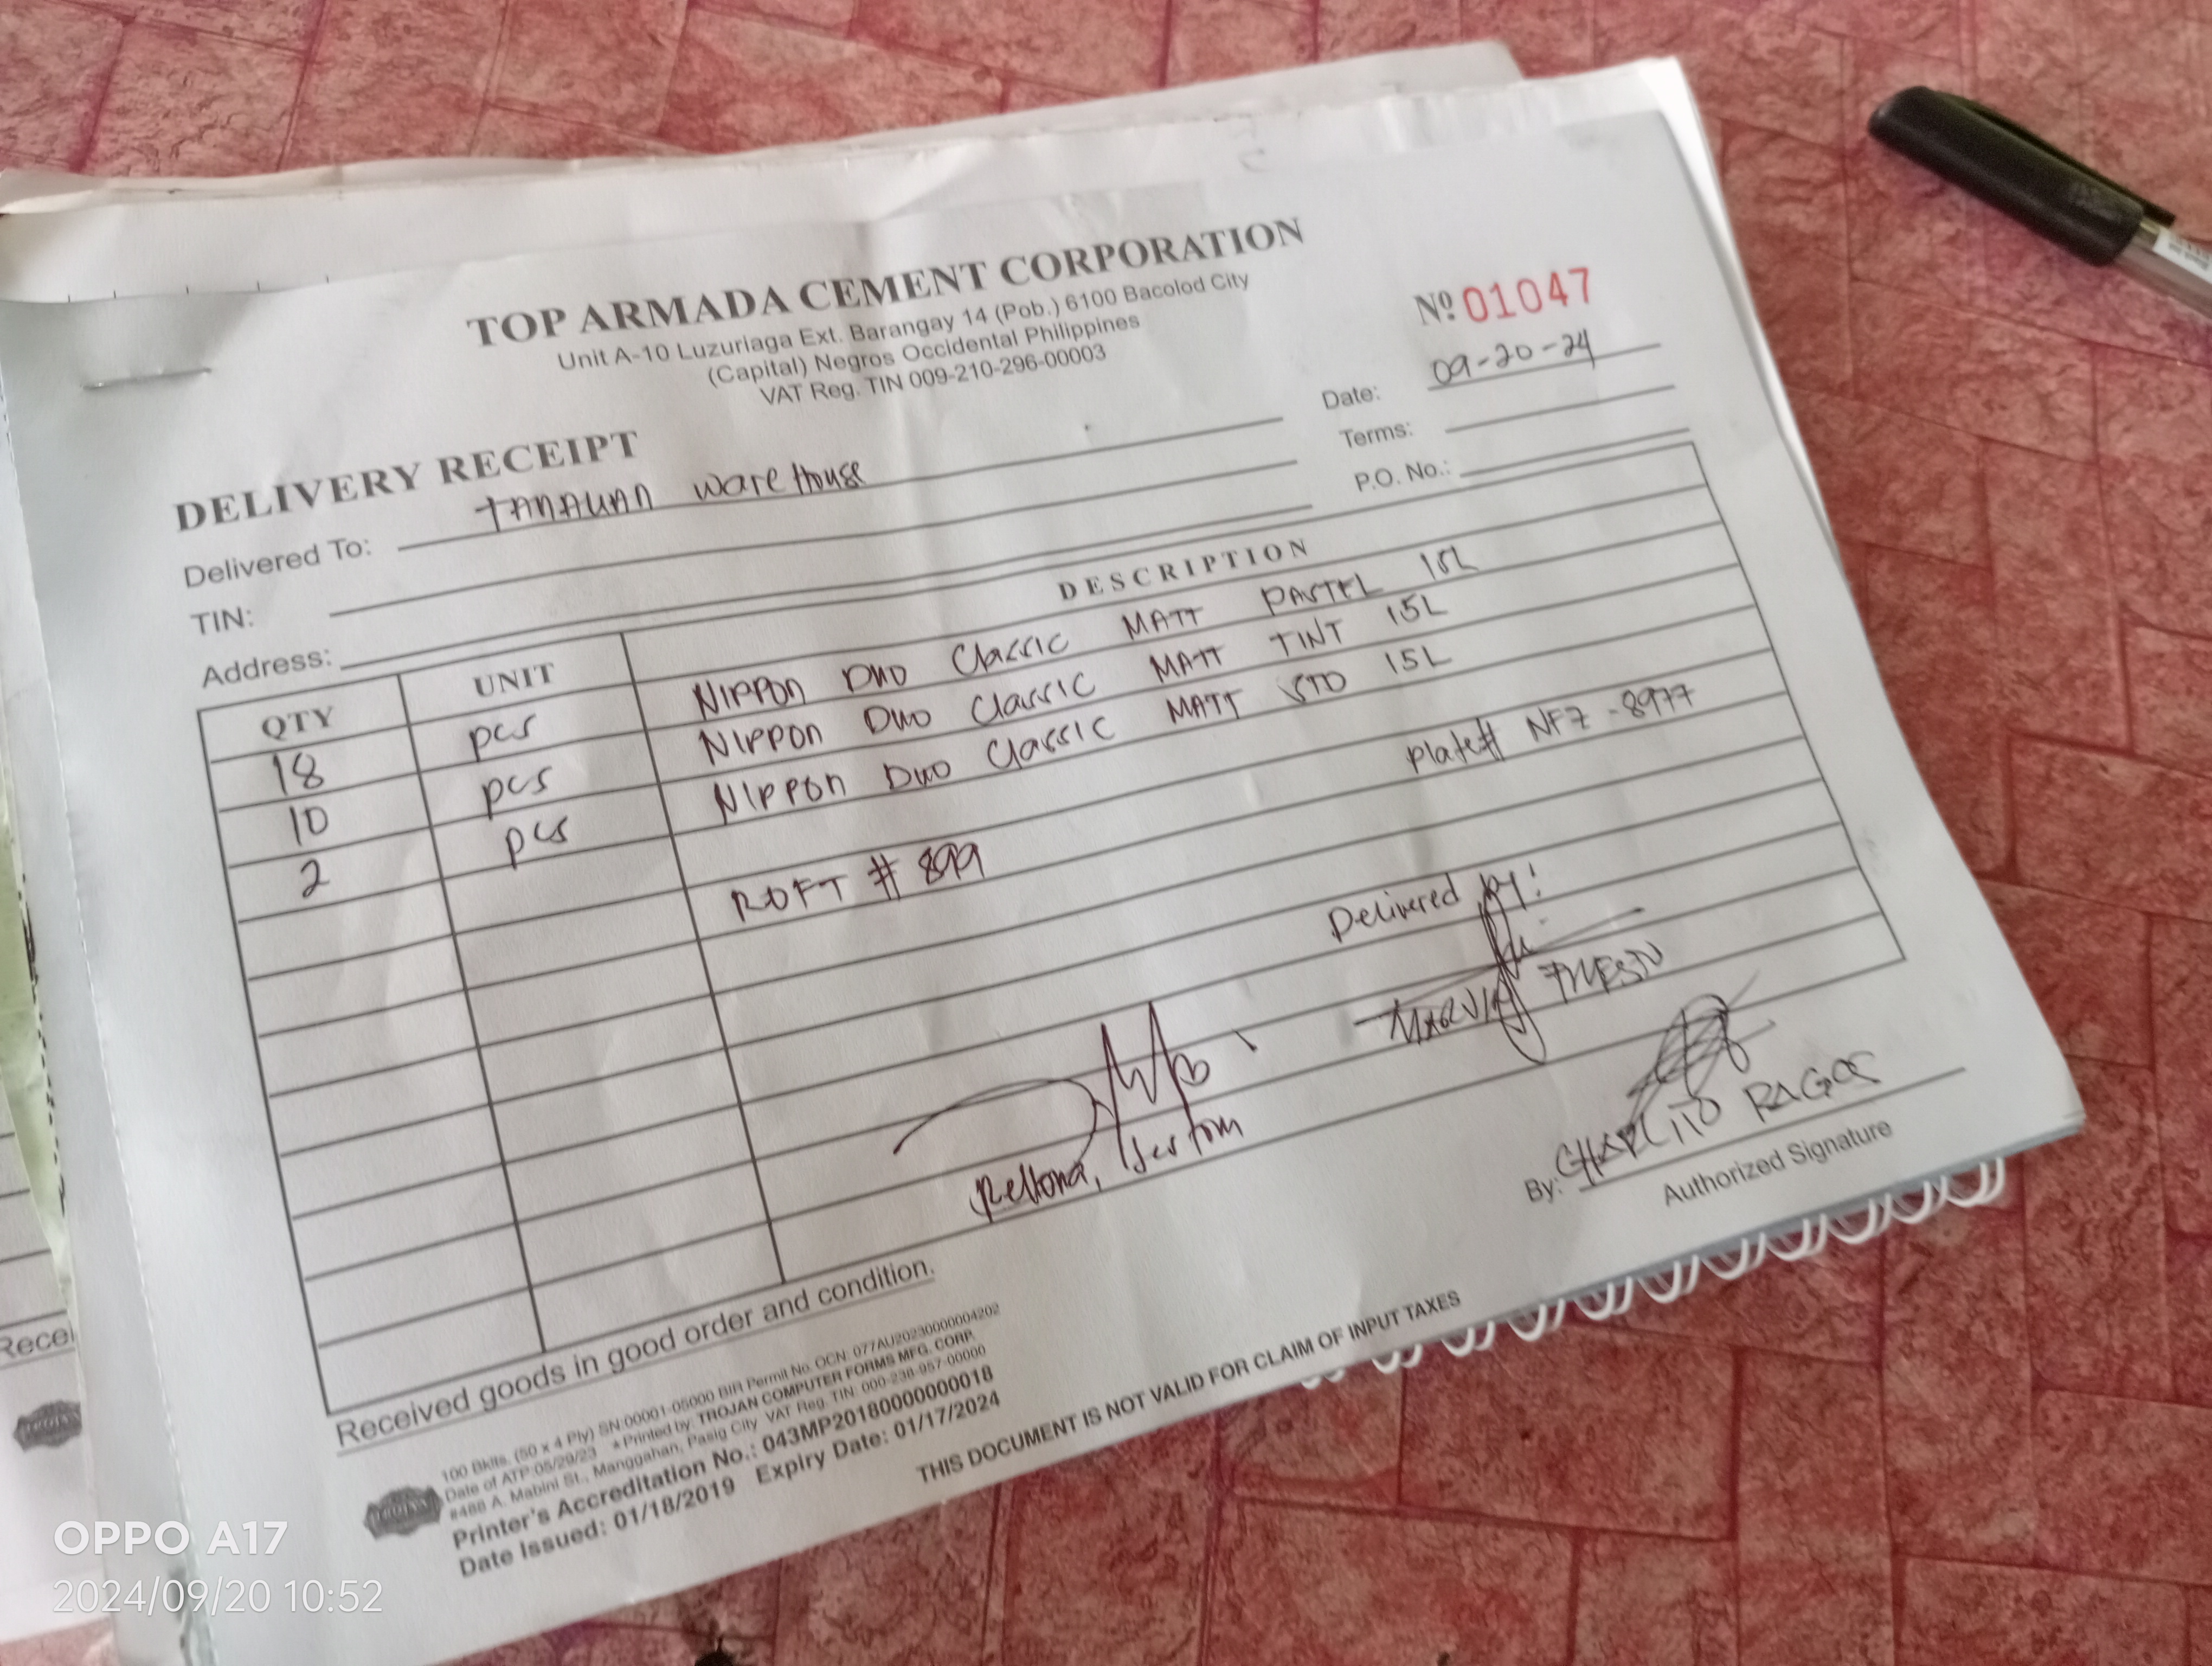 TOP ARMADA CEMENT CORPORATION
Unit A-10 Luzuriaga Ext. Barangay 14 (Pob.) 6100 Bacolod City
(Capital) Negros Occidental Philippines
VAT Reg. TIN 009-210-296-00003
Nº 01047
DELIVERY RECEIPT
Date: 09-20-24
Delivered To: TANAUAN WareHouse
Terms:
TIN:
P.O. No.:
Address:
QTY UNIT DESCRIPTION
18 pcs NIPPON DUO Classic MATT PASTEL 15L
10 pcs NIPPON DUO Classic MATT TINT 15L
2 pcs NIPPON DUO Classic MATT STD 15L
Plate# NFZ-8977
RDFT # 899
Delivered by:
MARVIN
By: CHARLITO RAGOS
Authorized Signature
Received goods in good order and condition.
100 Bklts. (50 x 4 Ply) SN:00001-05000 BIR Permit No. OCN: 077AU20230000004202
Date of ATP:05/29/23 * Printed by: TROJAN COMPUTER FORMS MFG. CORP.
#488 A. Mabini St., Manggahan, Pasig City VAT Reg. TIN: 000-238-957-00000
Printer's Accreditation No.: 043MP20180000000018
Date Issued: 01/18/2019 Expiry Date: 01/17/2024
THIS DOCUMENT IS NOT VALID FOR CLAIM OF INPUT TAXES
Recei
OPPO A17
2024/09/20 10:52